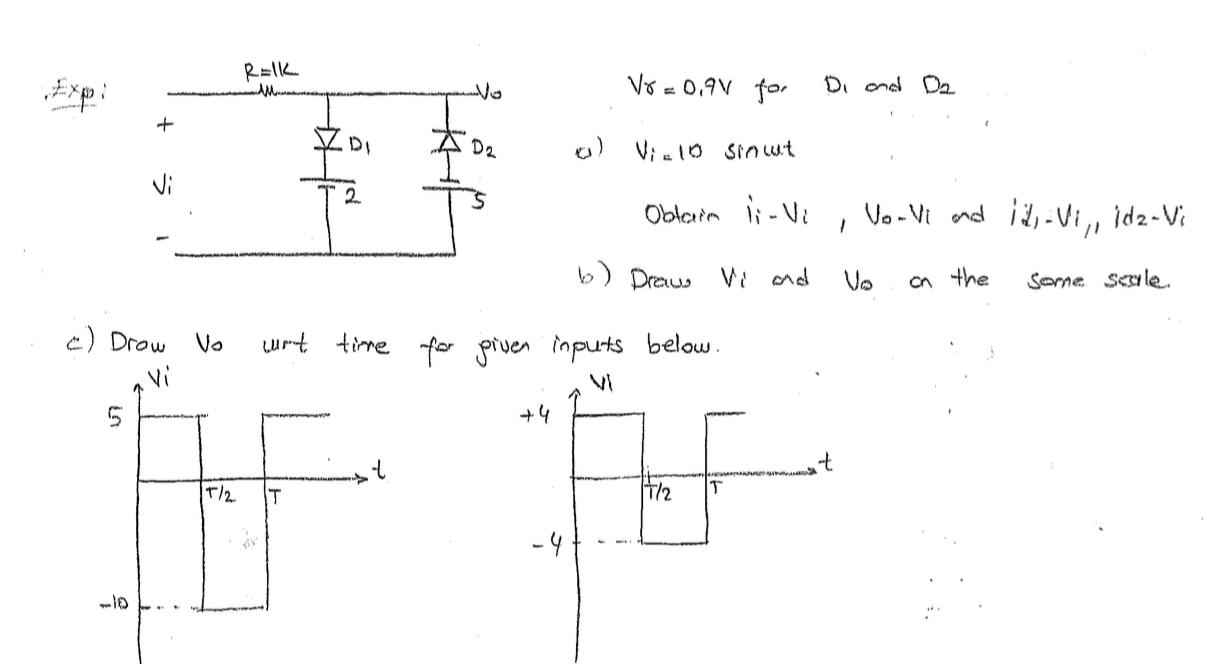 Exp:
R=1K
Vo
+
Vi
-
D1
2
D2
5
Vγ = 0,9V for D1 and D2
a) Vi = 10 sinwt
Obtain ii-Vi , Vo-Vi and id1-Vi,, id2-Vi
b) Draw Vi and Vo on the same scale.
c) Draw Vo wrt time for given inputs below.
Vi
5
t
T/2
T
-10
Vi
+4
t
T/2
T
-4